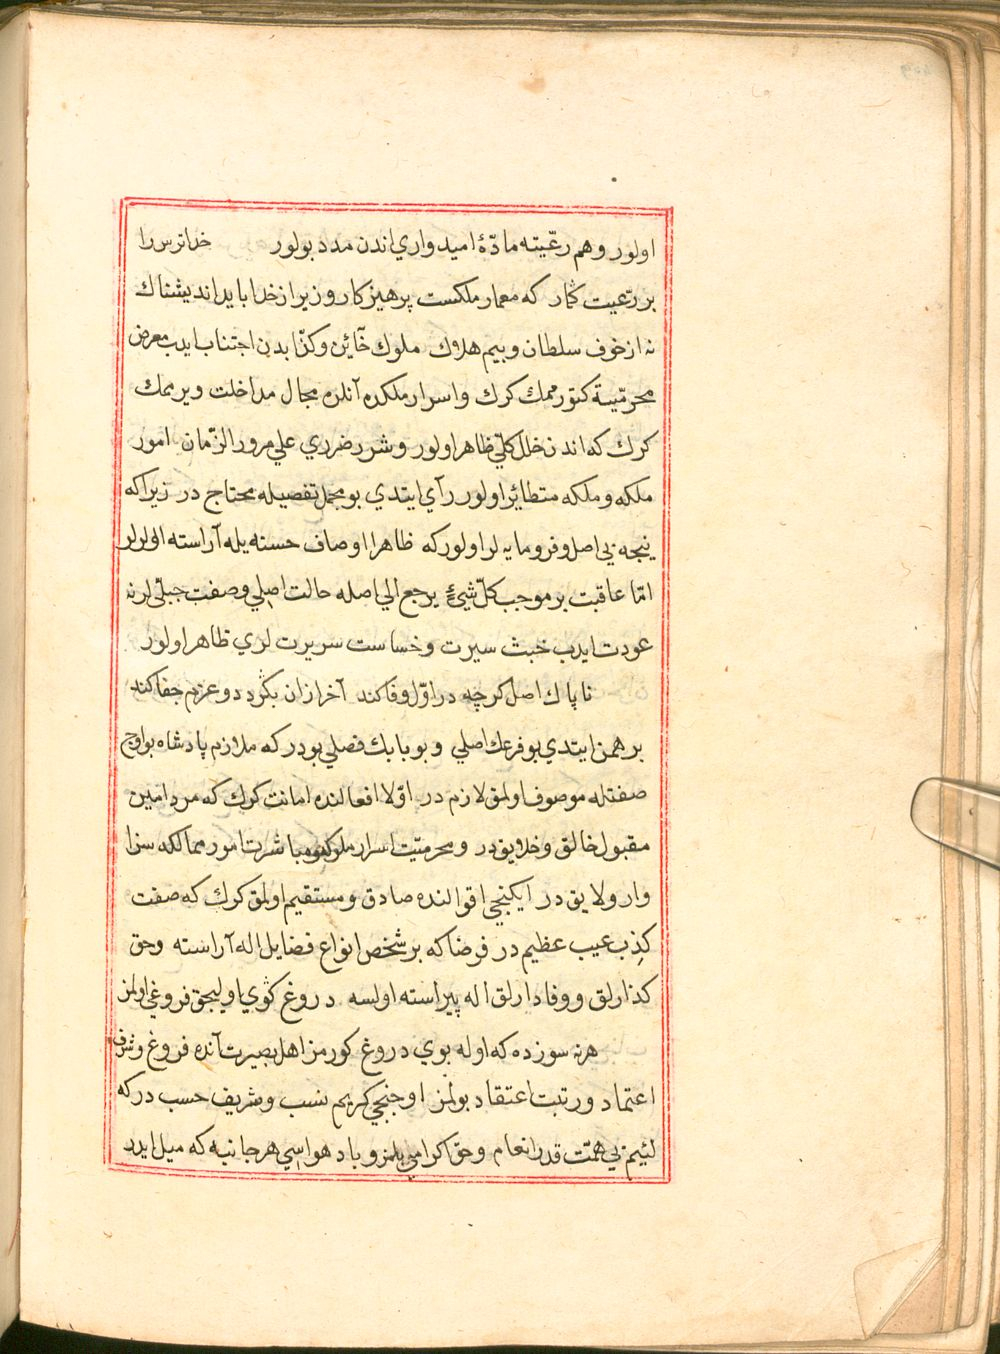 اولور وهم رعّيته مادّهٔ اميدواري اندن مدد بولور خداترس را
بر رعّيت كمار كه معمار ملكست پرهيزكار وزير از خدا بايد انديشناك
نه از خوف سلطان وبيم هلاك ملوك خآئن وكذّابدن اجتناب ايدب معرض
محرميّة كتورممك كرك واسرار ملكده آنلره مجال مداخلت ويرممك
كرك كه اندن خلل كلّي ظاهر اولور وشرر ضرري علي مرور الزّمان امور
ملكه وملكه متطائر اولور رآي ايتدي بو مجمل تفصيله محتاج در زيرا كه
نيجه بي اصل وفرومايه لر اولور كه ظاهرا اوصاف حسنه يله آراسته اولرلر
امّا عاقبت بر موجب كلّ شيئ يرجع الي اصله حالت اصلي وصفت جبلّي لرنه
عودت ايدب خبث سيرت وخساست سريرت لري ظاهر اولور
ناپاك اصل كرچه در اوّل وفا كند آخر از ان بكردد وعزم جفا كند
برهمن ايتدي بو فرعك اصلي وبو بابك فصلي بودر كه ملازم پادشاه بو اوچ
صفتله موصوف اولمق لازم در اوّلا افعالنده امانت كرك كه مرد امين
مقبول خالق وخلايق در ومحرميّت اسرار ملوكه ومباشرت امور ممالكه سزا
وار ولايق در ايكنجي اقوالنده صادق ومستقيم اولمق كرك كه صفت
كذب عيب عظيم در فرضا كه بر شخص انواع فضايل اله آراسته وحق
كذارلق ووفادارلق اله پيراسته اولسه دروغ كوي اوليجق فروغي اولمز
هر نه سوزده كه اوله بوي دروغ كورمز اهل بصيرت آنده فروغ وشرف
اعتماد ورتبت اعتقاد بولمز اوجنجي كريم نسب وشريف حسب در كه
لئيم بي همّت قدر انعام وحق اكرامي بلمز وباد هواسي هر جانبه كه ميل ايدر